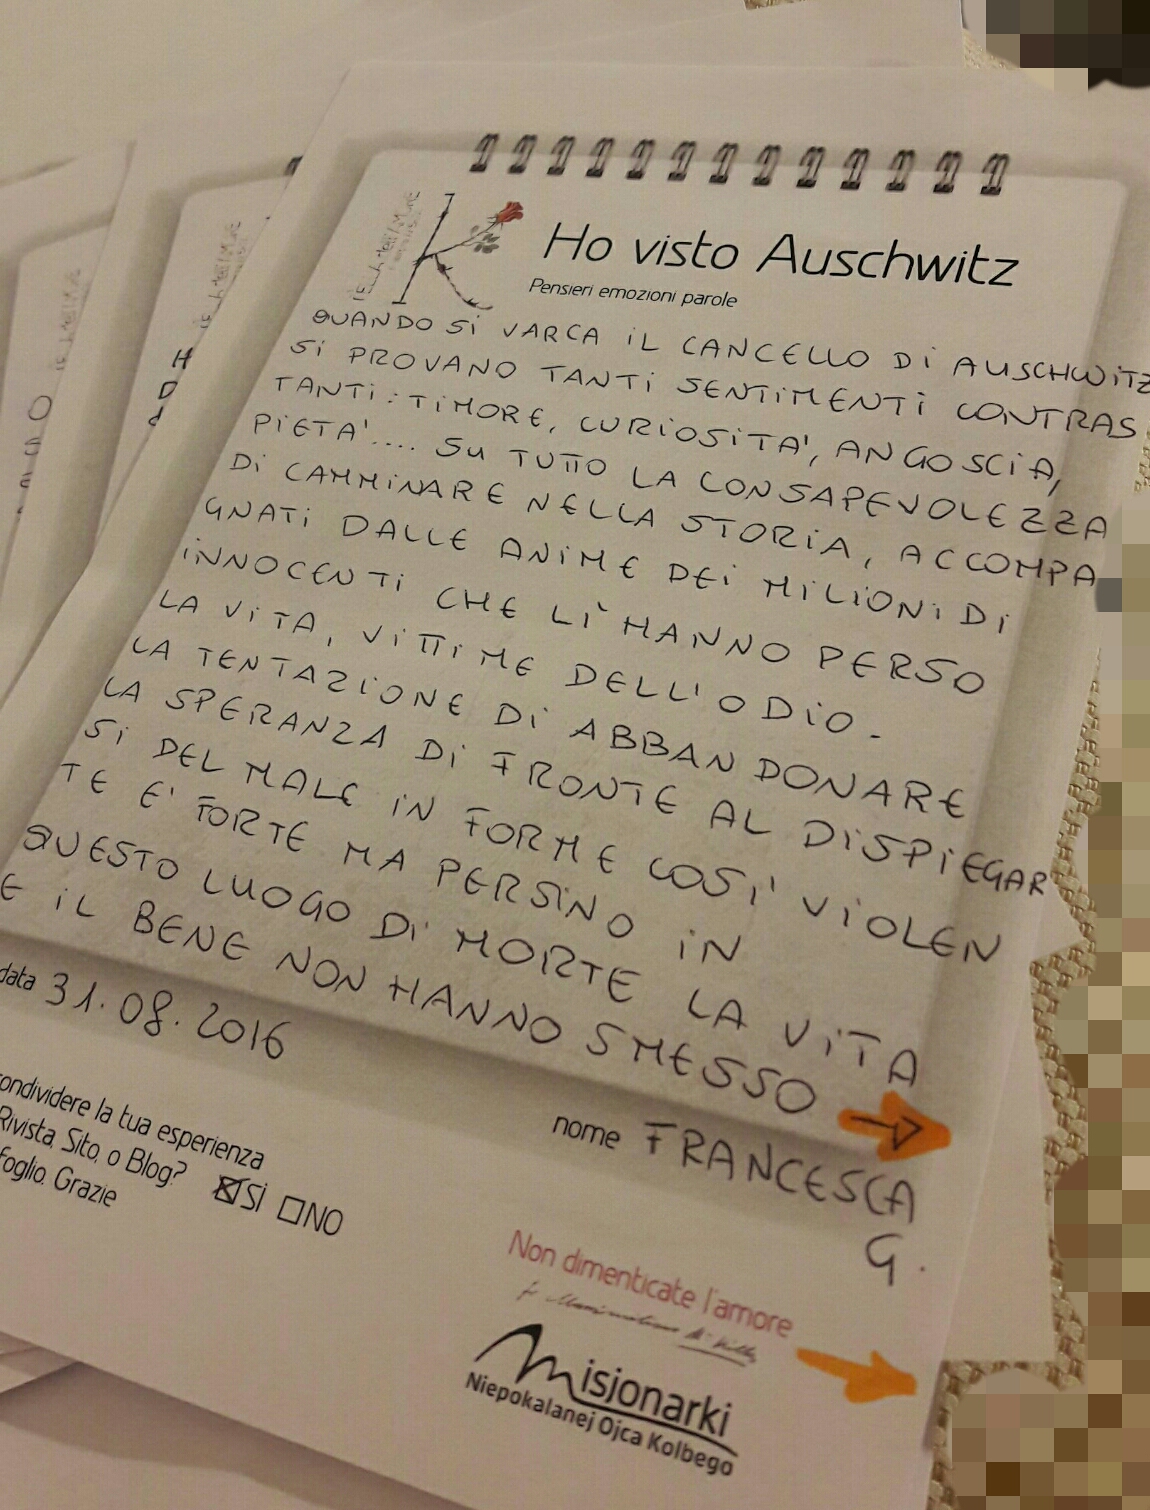 Ho visto Auschwitz
Pensieri emozioni parole
QUANDO SI VARCA IL CANCELLO DI AUSCHWITZ
SI PROVANO TANTI SENTIMENTI CONTRAS
TANTI: TIMORE, CURIOSITA', ANGOSCIA,
PIETA'.... SU TUTTO LA CONSAPEVOLEZZA
DI CAMMINARE NELLA STORIA, ACCOMPA
GNATI DALLE ANIME DEI MILIONI DI
INNOCENTI CHE LI' HANNO PERSO
LA VITA, VITTIME DELL'ODIO.
LA TENTAZIONE DI ABBANDONARE
LA SPERANZA DI FRONTE AL DISPIEGAR
SI DEL MALE IN FORME COSI' VIOLEN
TE E' FORTE MA PERSINO IN
QUESTO LUOGO DI MORTE LA VITA
E IL BENE NON HANNO SMESSO →
data 31.08.2016
nome FRANCESCA
G.
ondividere la tua esperienza
Rivista, Sito, o Blog?
foglio. Grazie
SÌ NO
Non dimenticate l'amore
Misjonarki
Niepokalanej Ojca Kolbego